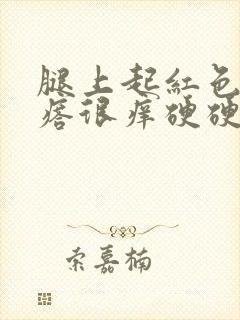 腿上起红色
痞很痒硬硬
索嘉楠